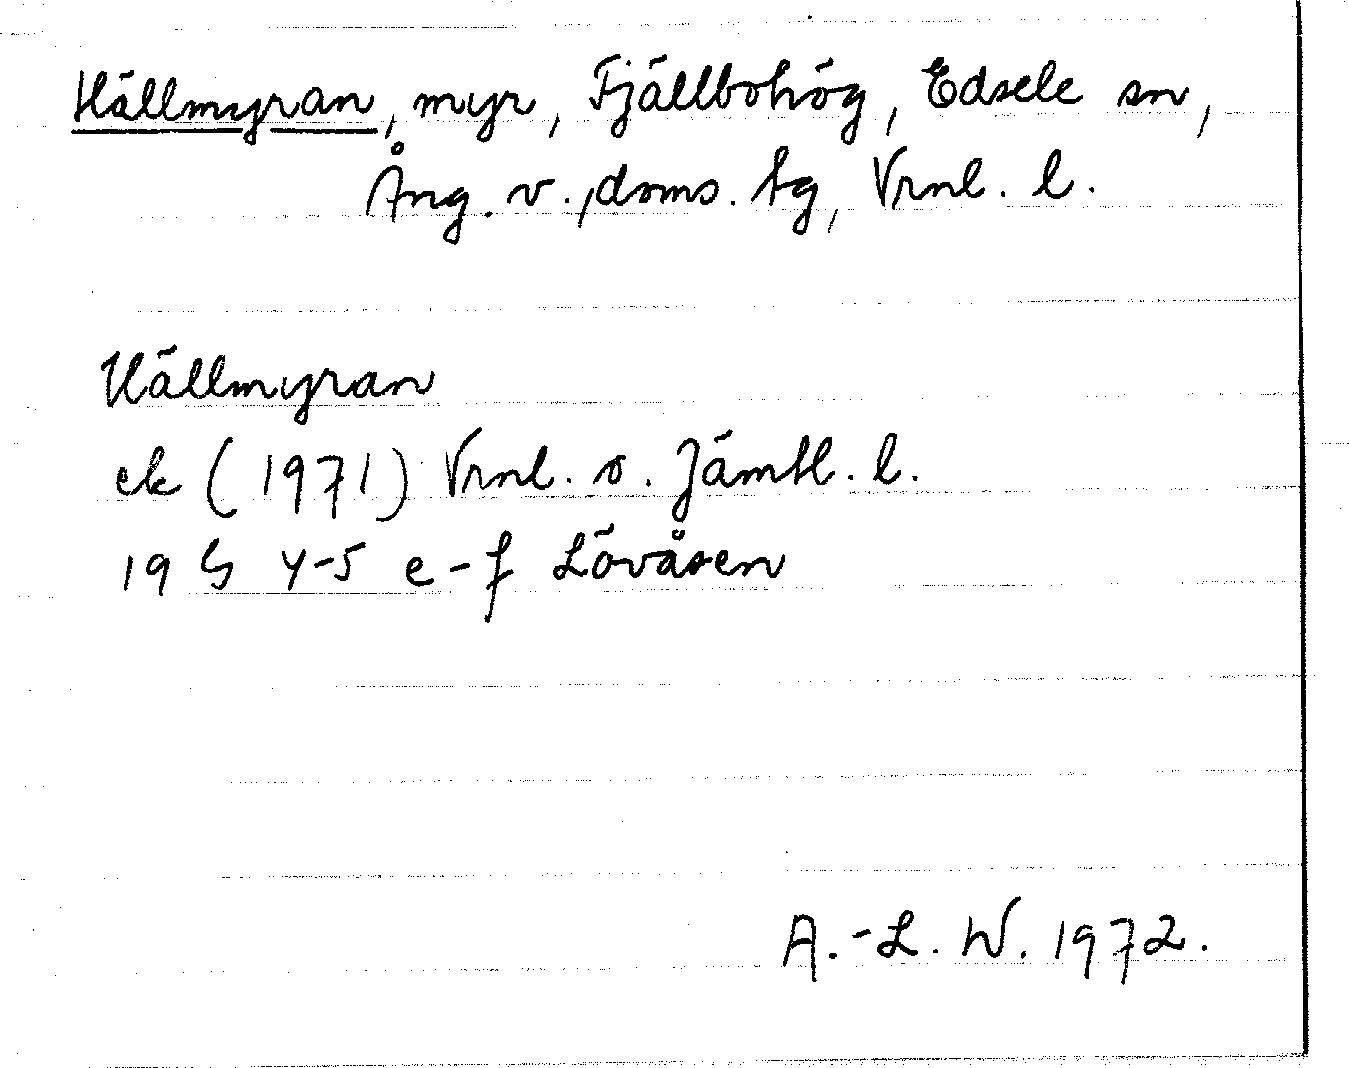 Hällmyran, myr, Fjällbohög, Edsele sn,
Ång. v., doms. tg, Vrnl. l.
Hällmyran
ek (1971) Vrnl. o. Jämtl. l.
19 G 4-5 e-f Lövåsen
A.-L. W. 1972.